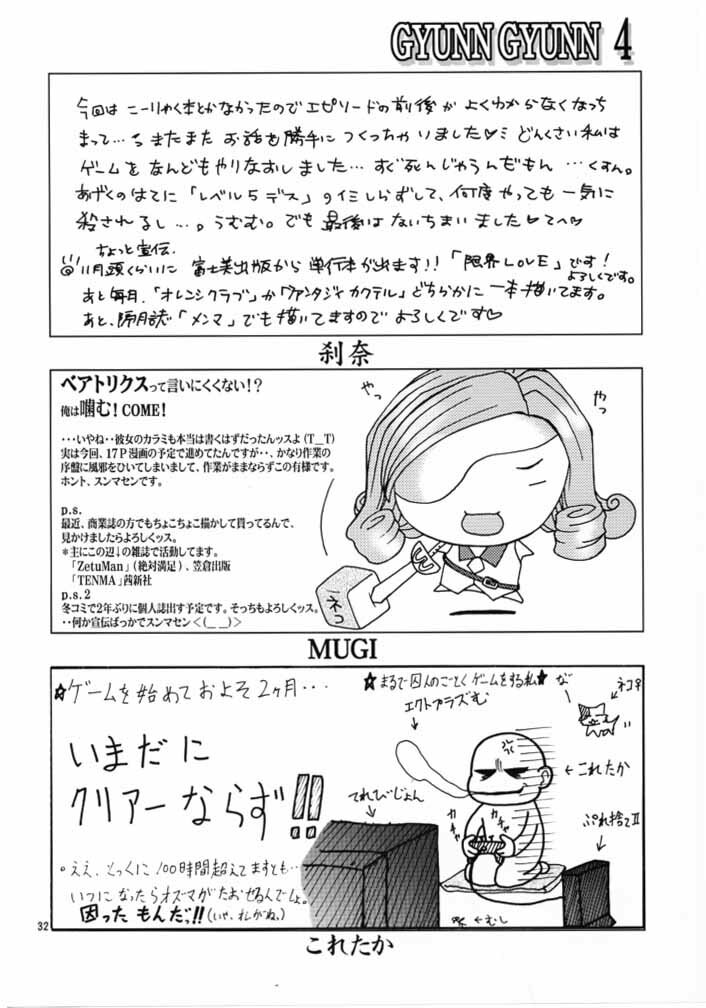 GYUNN GYUNN 4
今回はこーりゃく本とかなかったのでエピソードの前後がよくわからなくなっち
まって…、またまたお話を勝手につくっちゃいました♡ミ どんくさい私は
ゲームをなんどもやりなおしました…すぐ死んじゃうんだもん…くすん。
あげくのはてに「レベル5デス」のイミしらずして、何度やっても一気に
殺されるし…。うむむ。でも最後はないちまいました♡てへ♡
ちょっと宣伝.
11月頭くらいに 富士美出版から単行本が出ます!!「限界LOVE」です!
よろしくです。
あと毎月、「オレンジクラブ」か「ファンタジィカクテル」どちらかに一本描いてます。
あと、隔月誌「メンマ」でも描いてますのでよろしくです♡
刹奈
ベアトリクスって言いにくくない!?
俺は噛む! COME!
・・・いやね・・彼女のカラミも本当は書くはずだったんッスよ(T_T)
実は今回、17P漫画の予定で進めてたんですが・・、かなり作業の
序盤に風邪をひいてしまいまして、作業がままならずこの有様です。
ホント、スンマセンです。
p.s.
最近、商業誌の方でもちょこちょこ描かして買ってるんで、
見かけましたらよろしくッス。
*主にこの辺↓の雑誌で活動してます。
「ZetuMan」(絶対満足)、笠倉出版
「TENMA」茜新社
p.s.2
冬コミで2年ぶりに個人誌出す予定です。そっちもよろしくッス。
・・何か宣伝ばっかでスンマセン<(_ _)>
やっ
やっ
ネコ
MUGI
☆ゲームを始めておよそ2ヶ月・・・
いまだに
クリアーならず!!
。ええ、とっくに100時間超えてますとも…
いつになったらオズマがたおせるんでしょ。
困ったもんだっ!!(いや、オレがね。)
★まるで囚人のごとくゲームをする私★
エクトプラズむ
な〜
ネコ♀
←これたか
てれびじょん
カチャ
カチャ
ぷれ捨てII
←むし
32
これたか